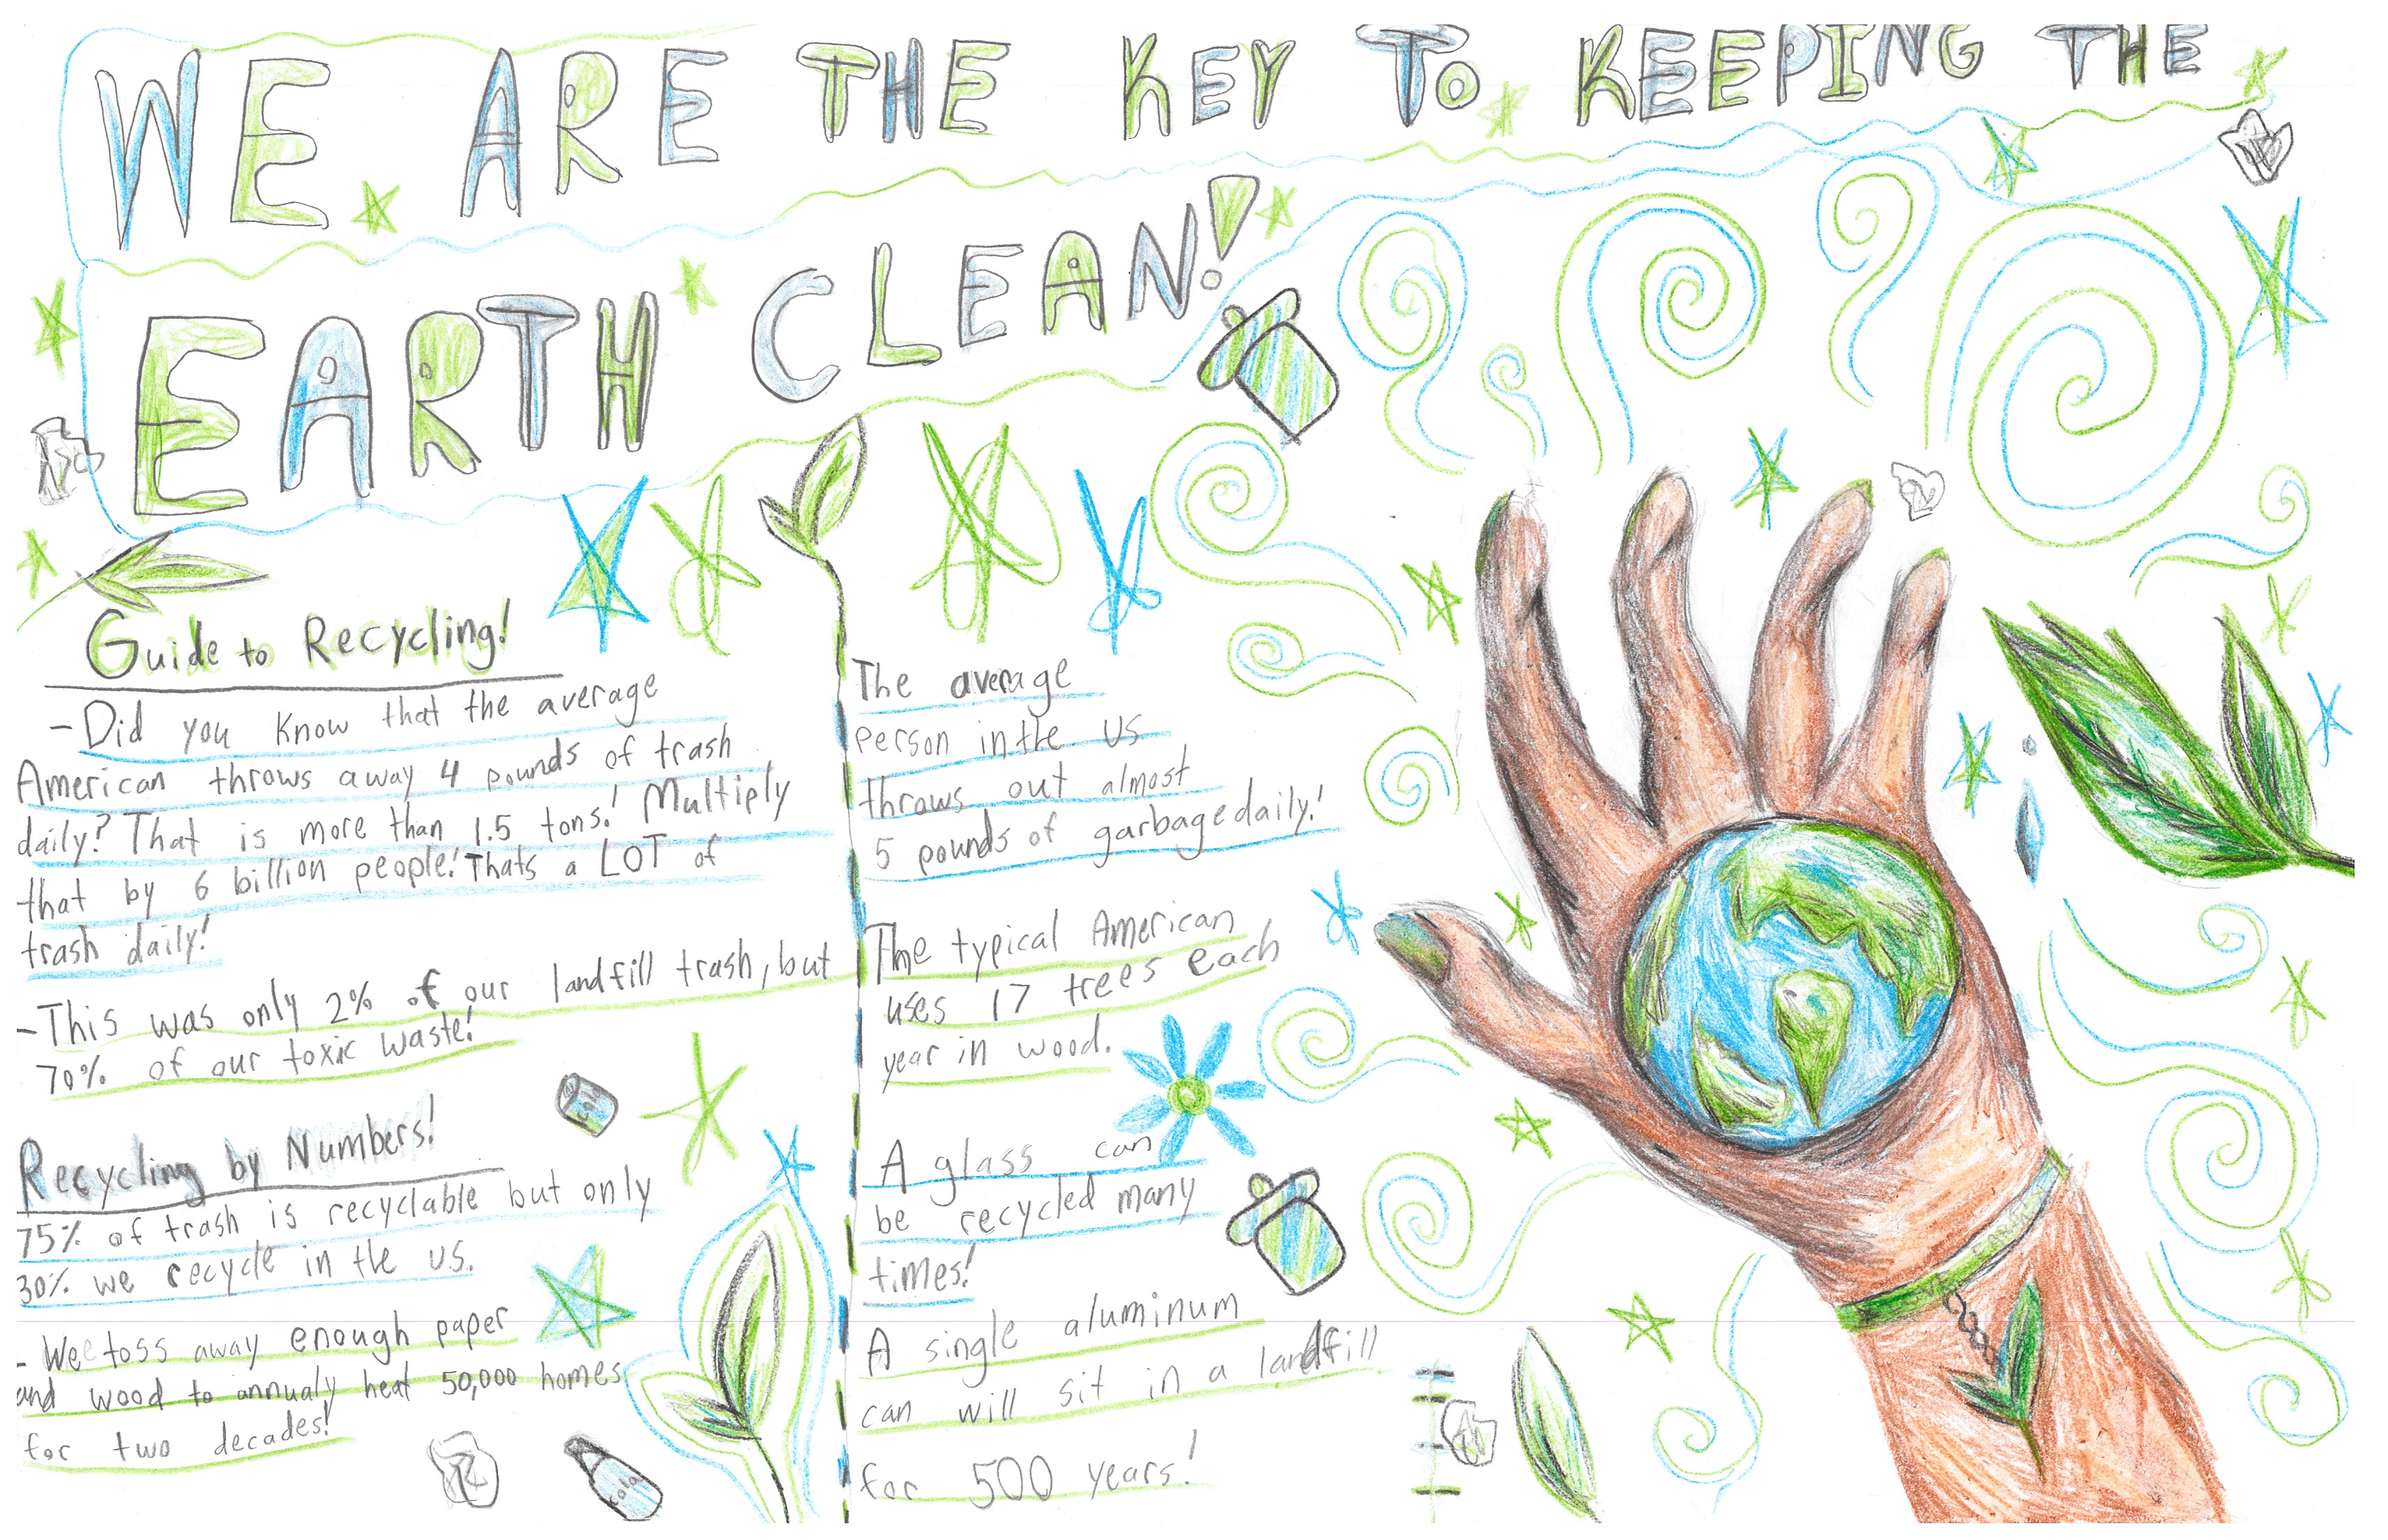 WE ARE THE KEY TO KEEPING THE
EARTH CLEAN!
Guide to Recycling!
-Did you know that the average
American throws away 4 pounds of trash
daily? That is more than 1.5 tons! Multiply
that by 6 billion people! Thats a LOT of
trash daily!
-This was only 2% of our landfill trash, but
70% of our toxic waste!
Recycling by Numbers!
75% of trash is recyclable but only
30% we recycle in the U.S.
- We toss away enough paper
and wood to annualy heat 50,000 homes
for two decades!
The average
person in the US
throws out almost
5 pounds of garbage daily!
The typical American
uses 17 trees each
year in wood.
A glass can
be recycled many
times!
A single aluminum
can will sit in a landfill
for 500 years!
cola